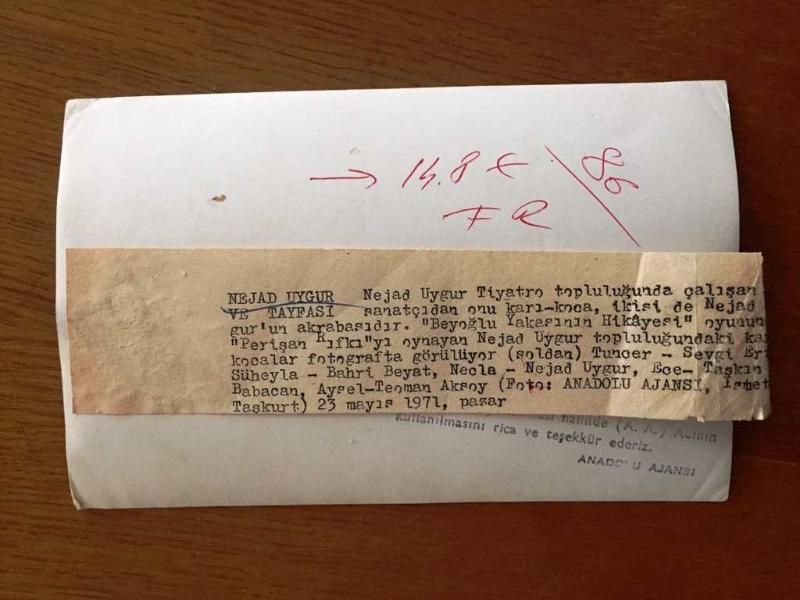 → 14.8 € / 86
F R
NEJAD UYGUR Nejad Uygur Tiyatro topluluğunda çalışan
VE TAYFASI sanatçıdan onu karı-koca, ikisi de Nejad
gur'un akrabasıdır. "Beyoğlu Yakasının Hikâyesi" oyunun
"Perişan Rıfkı"yı oynayan Nejad Uygur topluluğundaki ka
kocalar fotografta görülüyor (soldan) Tuncer - Sevgi Er
Süheyla - Bahri Beyat, Necla - Nejad Uygur, Ece- Taşkın
Babacan, Aysel-Teoman Aksoy (Foto: ANADOLU AJANSI, İsmet
Taşkurt) 23 mayıs 1971, pazar
halinde (A. A.) Adının
kullanılmasını rica ve teşekkür ederiz.
ANADOLU AJANSI